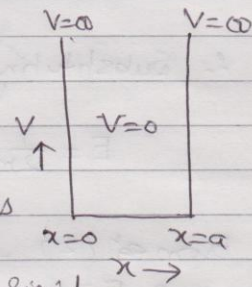 V=∞ V=∞
V V=0
x=0 x=a
x→